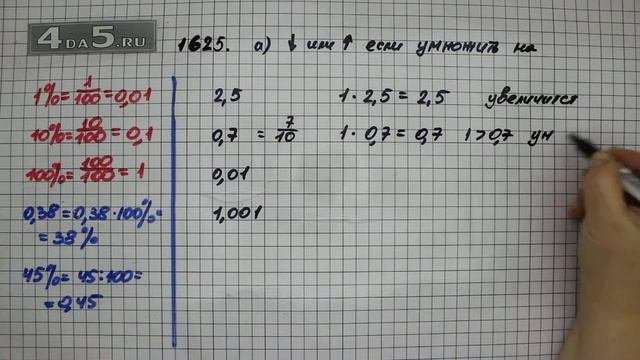 4DA5.RU
1625. а) ↓ или ↑ если умножить на
1% = 1/100 = 0,01
10% = 10/100 = 0,1
100% = 100/100 = 1
0,38 = 0,38 · 100% =
= 38%
45% = 45 : 100 =
= 0,45
2,5 1 · 2,5 = 2,5 увеличится
0,7 = 7/10 1 · 0,7 = 0,7 1 > 0,7 ум
0,01
1,001